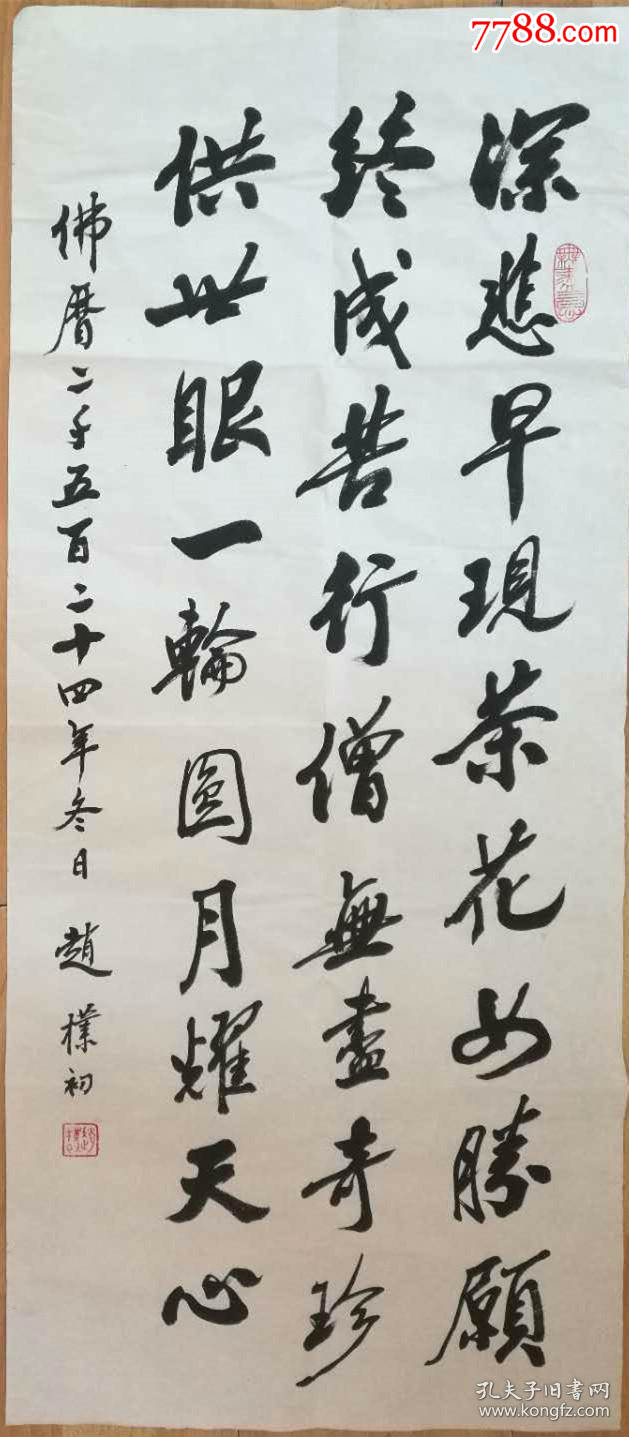 7788.com
深悲早現茶花女勝願
終成苦行僧無盡奇珍
供世眼一輪圓月耀天心
佛曆二千五百二十四年冬日 趙樸初
孔夫子旧書网
www.kongfz.com